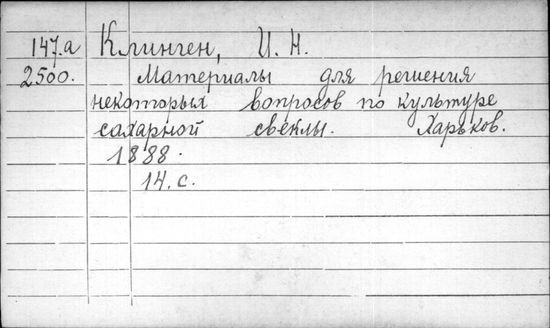 147.а Клинген, И. Н.
2500. Материалы для решения
некоторых вопросов по культуре
сахарной свёклы. Харьков.
1888.
14. с.